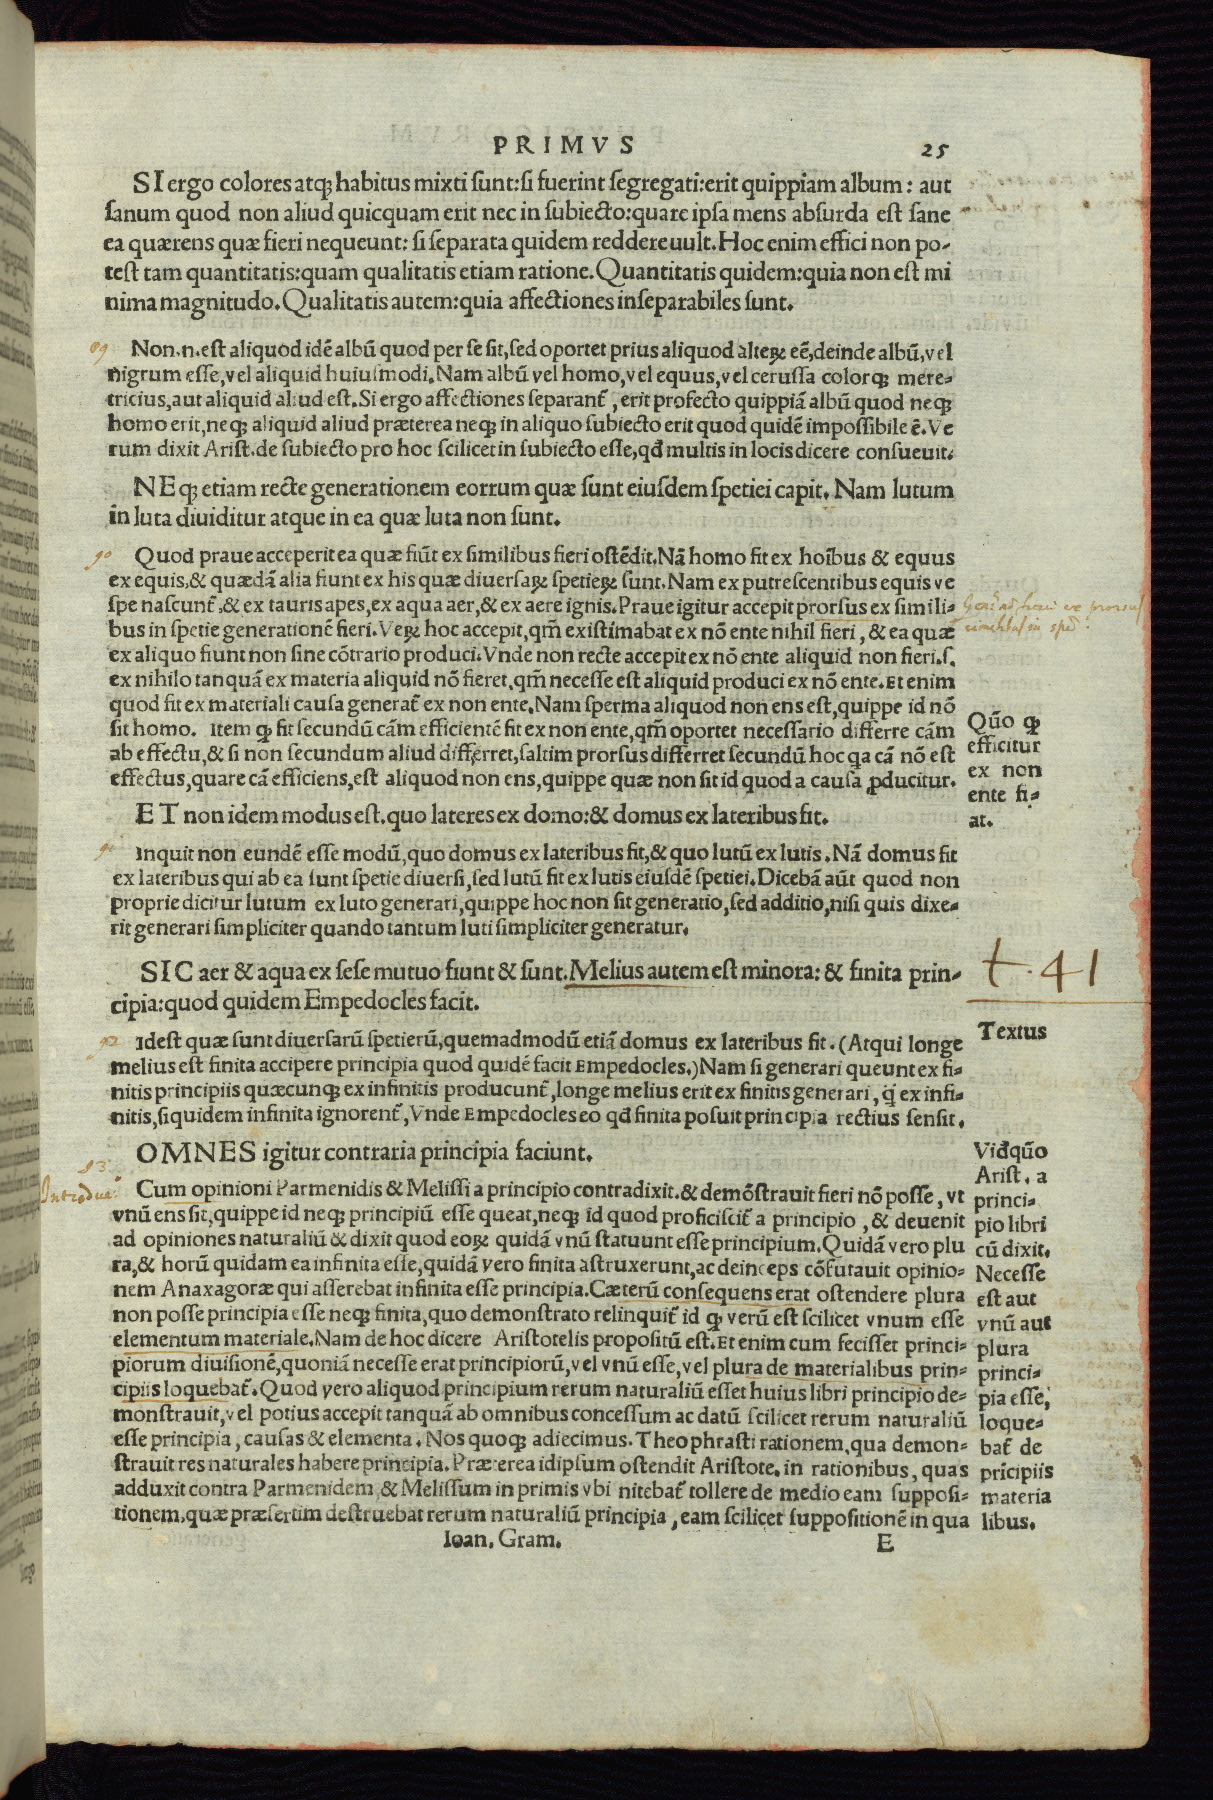 PRIMVS 25
SI ergo colores atq; habitus mixti sunt: si fuerint segregati: erit quippiam album: aut
sanum quod non aliud quicquam erit nec in subiecto: quare ipsa mens absurda est sane
ea quærens quæ fieri nequeunt: si separata quidem reddere uult. Hoc enim effici non po-
test tam quantitatis: quam qualitatis etiam ratione. Quantitatis quidem: quia non est mi
nima magnitudo. Qualitatis autem: quia affectiones inseparabiles sunt.
89
Non.n.est aliquod idē albū quod per se sit, sed oportet prius aliquod alteꝝ eē, deinde albū, vel
nigrum esse, vel aliquid huiusmodi. Nam albū vel homo, vel equus, vel cerussa colorq; mere-
tricius, aut aliquid aliud est. Si ergo affectiones separant̃, erit profecto quippiā albū quod neq;
homo erit, neq; aliquid aliud præterea neq; in aliquo subiecto erit quod quidē impossibile ē. Ve
rum dixit Arist. de subiecto pro hoc scilicet in subiecto esse, qđ multis in locis dicere consueuit.
NEq; etiam recte generationem eorrum quæ sunt eiusdem spetiei capit. Nam lutum
in luta diuiditur atque in ea quæ luta non sunt.
90
Quod praue acceperit ea quæ fiūt ex similibus fieri ostēdit. Nā homo fit ex hoībus & equus
ex equis, & quædā alia fiunt ex his quæ diuersaꝝ spetieꝝ sunt. Nam ex putrescentibus equis ve
spe nascunt̃, & ex tauris apes, ex aqua aer, & ex aere ignis. Praue igitur accepit prorsus ex simili-
bus in spetie generationē fieri. Veꝝ hoc accepit, qm̃ existimabat ex nō ente nihil fieri, & ea quæ
ex aliquo fiunt non sine cōtrario produci. Vnde non recte accepit ex nō ente aliquid non fieri. s.
ex nihilo tanquā ex materia aliquid nō fieret, qm̃ necesse est aliquid produci ex nō ente. Et enim
quod fit ex materiali causa generat̃ ex non ente. Nam sperma aliquod non ens est, quippe id nō
sit homo. Item ꝙ fit secundū cām efficientē fit ex non ente, qm̃ oportet necessario differre cām
ab effectu, & si non secundum aliud differret, saltim prorsus differret secundū hoc qa cā nō est
effectus, quare cā efficiens, est aliquod non ens, quippe quæ non sit id quod a causa ꝓducitur.
Quō ꝙ
efficitur
ex non
ente fi-
at.
ET non idem modus est. quo lateres ex domo: & domus ex lateribus fit.
91
Inquit non eundē esse modū, quo domus ex lateribus fit, & quo lutū ex lutis. Nā domus fit
ex lateribus qui ab ea sunt spetie diuersi, sed lutū fit ex lutis eiusdē spetiei. Dicebā aūt quod non
proprie dicitur lutum ex luto generari, quippe hoc non sit generatio, sed additio, nisi quis dixe-
rit generari simpliciter quando tantum luti simpliciter generatur.
SIC aer & aqua ex sese mutuo fiunt & sunt. Melius autem est minora: & finita prin-
cipia: quod quidem Empedocles facit.
t. 41
Textus
92
Idest quæ sunt diuersarū spetierū, quemadmodū etiā domus ex lateribus fit. (Atqui longe
melius est finita accipere principia quod quidē facit Empedocles.) Nam si generari queunt ex fi-
nitis principiis quæcunq; ex infinitis producunt̃, longe melius erit ex finitis generari, q̃ ex infi-
nitis, siquidem infinita ignorent̃, Vnde Empedocles eo qđ finita posuit principia rectius sensit.
OMNES igitur contraria principia faciunt.
93
Cum opinioni Parmenidis & Melissi a principio contradixit. & demōstrauit fieri nō posse, vt
vnū ens sit, quippe id neq; principiū esse queat, neq; id quod proficiscit̃ a principio, & deuenit
ad opiniones naturaliū & dixit quod eoꝝ quidā vnū statuunt esse principium. Quidā vero plu
ra, & horū quidam ea infinita esse, quidā vero finita astruxerunt, ac deinceps cōfutauit opinio-
nem Anaxagoræ qui asserebat infinita esse principia. Cæterū consequens erat ostendere plura
non posse principia esse neq; finita, quo demonstrato relinquit̃ id ꝙ verū est scilicet vnum esse
elementum materiale. Nam de hoc dicere Aristotelis propositū est. Et enim cum fecisset princi-
piorum diuisionē, quoniā necesse erat principiorū, vel vnū esse, vel plura de materialibus prin-
cipiis loquebat̃. Quod vero aliquod principium rerum naturaliū esset huius libri principio de-
monstrauit, vel potius accepit tanquā ab omnibus concessum ac datū scilicet rerum naturaliū
esse principia, causas & elementa. Nos quoq; adiecimus. Theophrasti rationem, qua demon-
strauit res naturales habere principia. Præterea idipsum ostendit Aristote. in rationibus, quas
adduxit contra Parmenidem, & Melissum in primis vbi nitebat̃ tollere de medio eam supposi-
tionem, quæ præsertim destruebat rerum naturaliū principia, eam scilicet suppositionē in qua
Vidqūo
Arist. a
princi-
pio libri
cū dixit.
Necesse
est aut
vnū aut
plura
princi-
pia esse,
loque-
bat̃ de
prīcipiis
materia
libus.
Ioan. Gram. E